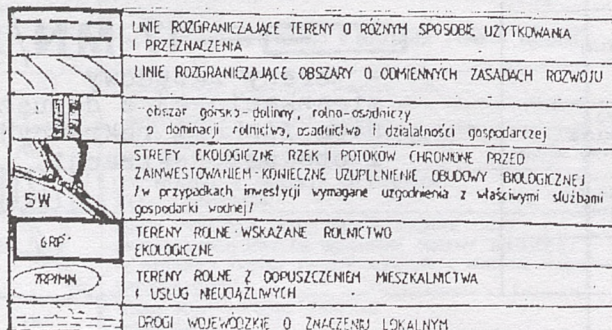 LINIE ROZGRANICZAJĄCE TERENY O RÓŻNYM SPOSOBIE UŻYTKOWANIA
I PRZEZNACZENIA
LINIE ROZGRANICZAJĄCE OBSZARY O ODMIENNYCH ZASADACH ROZWOJU
-obszar górsko-dolinny, rolno-osadniczy
o dominacji rolnictwa, osadnictwa i działalności gospodarczej
STREFY EKOLOGICZNE RZEK I POTOKÓW CHRONIONE PRZED
ZAINWESTOWANIEM-KONIECZNE UZUPEŁNIENIE OBUDOWY BIOLOGICZNEJ
/w przypadkach inwestycji wymagane uzgodnienia z właściwymi służbami
gospodarki wodnej/
5W
TERENY ROLNE-WSKAZANE ROLNICTWO
EKOLOGICZNE
6RP
TERENY ROLNE Z DOPUSZCZENIEM MIESZKALNICTWA
I USŁUG NIEUCIĄŻLIWYCH
7RP/MN
DROGI WOJEWÓDZKIE O ZNACZENIU LOKALNYM